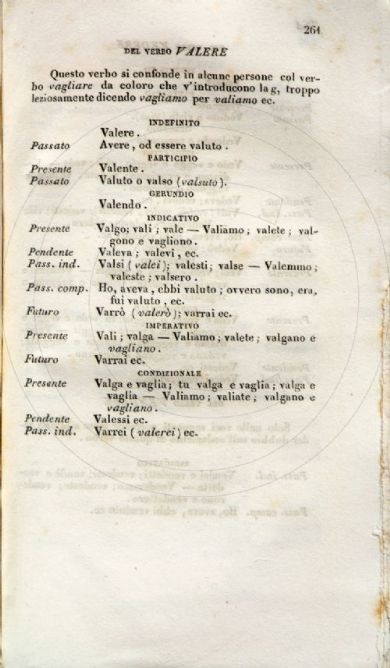 261
DEL VERBO VALERE
Questo verbo si confonde in alcune persone col ver-
bo vagliare da coloro che v'introducono la g, troppo
leziosamente dicendo vagliamo per valiamo ec.
INDEFINITO
Valere.
Passato Avere, od essere valuto.
PARTICIPIO
Presente Valente.
Passato Valuto o valso (valsuto).
GERUNDIO
Valendo.
INDICATIVO
Presente Valgo; vali; vale — Valiamo; valete; val-
gono e vagliono.
Pendente Valeva; valevi, ec.
Pass. ind. Valsi (valei); valesti; valse — Valemmo;
valeste; valsero.
Pass. comp. Ho, aveva, ebbi valuto; ovvero sono, era,
fui valuto, ec.
Futuro Varrò (valerò); varrai ec.
IMPERATIVO
Presente Vali; valga — Valiamo; valete; valgano e
vagliano.
Futuro Varrai ec.
CONDIZIONALE
Presente Valga e vaglia; tu valga e vaglia; valga e
vaglia — Valiamo; valiate; valgano e
vagliano.
Pendente Valessi ec.
Pass. ind. Varrei (valerei) ec.